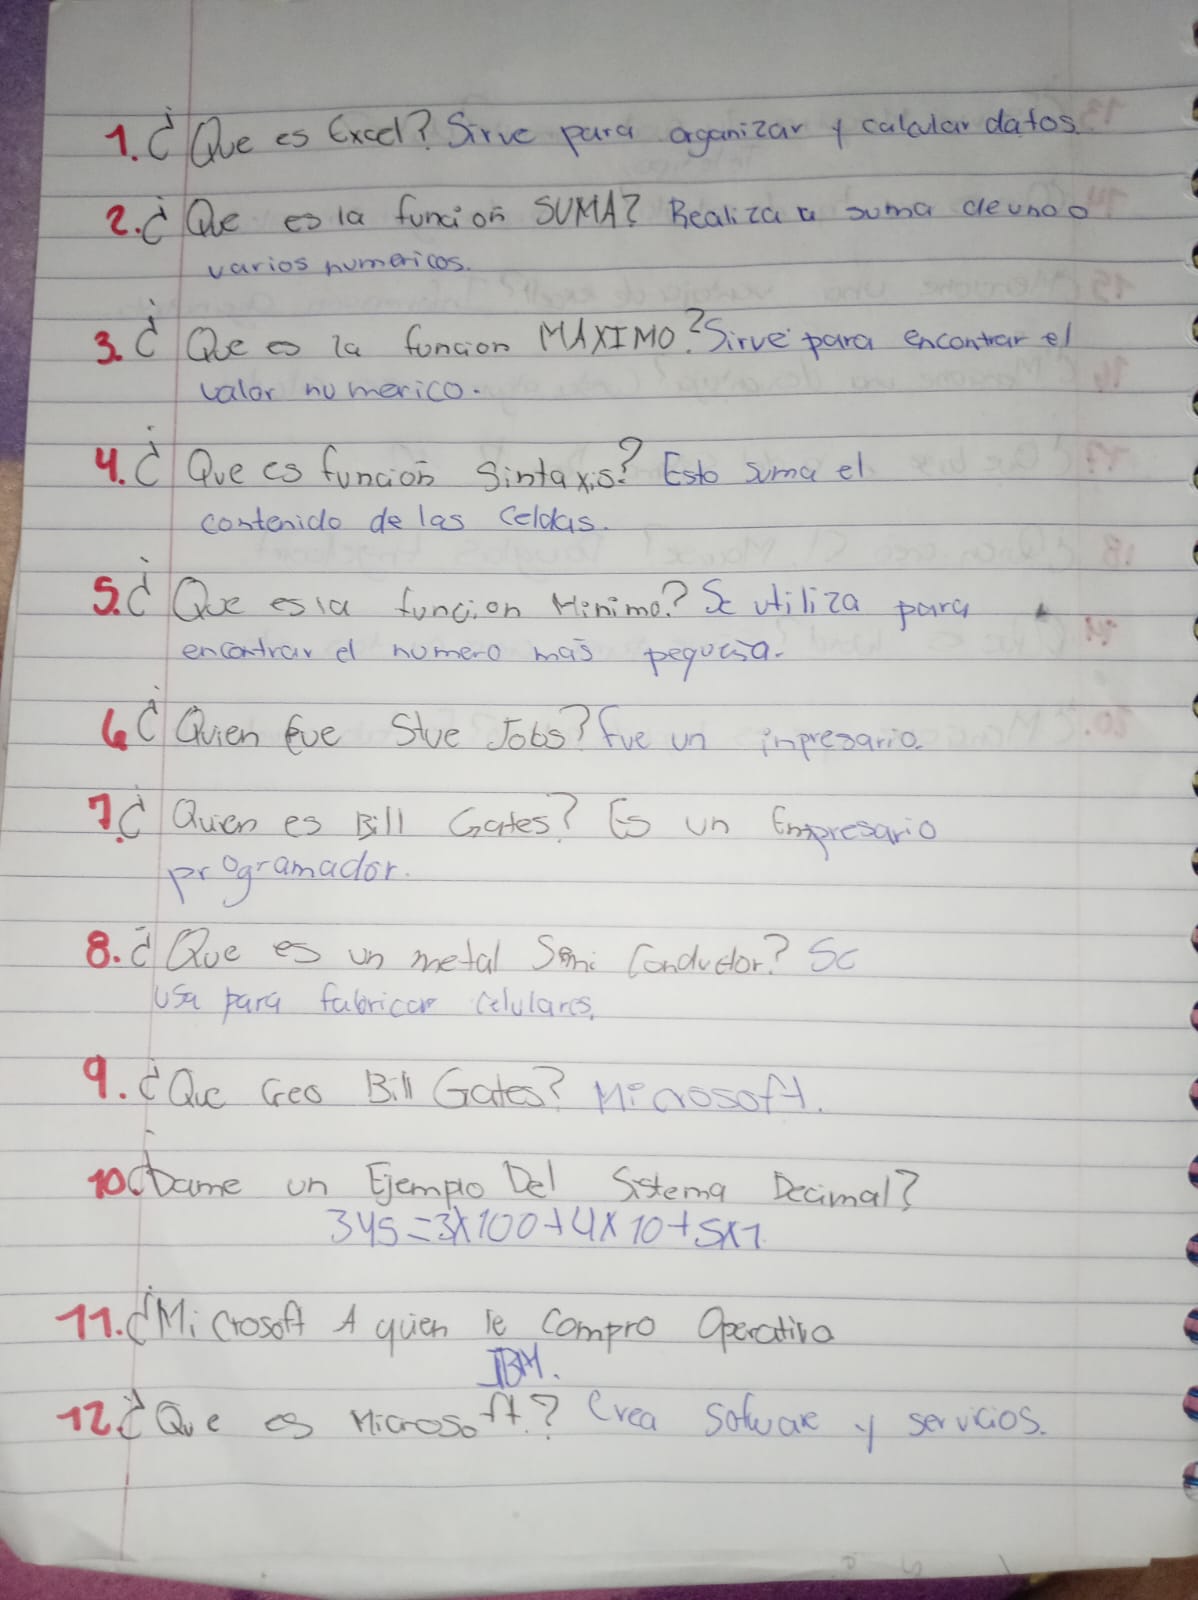 1. ¿Que es Excel? Sirve para organizar y calcular datos.
2. ¿Que es la funcion SUMA? Realiza a suma de uno o
varios numericos.
3. ¿Que es la funcion MAXIMO? Sirve para encontrar el
valor numerico.
4. ¿Que es función Sintaxis? Esto suma el
contenido de las celdas.
5. ¿Que es la funcion Minimo? Se utiliza para
encontrar el numero mas pequeña.
6 ¿Quien fue Stve Jobs? fue un inpresario.
7. ¿Quien es Bill Gates? Es un Empresario
programador.
8. ¿Que es un metal Semi Conductor? Se
usa para fabricar celulares.
9. ¿Que Creo Bill Gates? Microsoft.
10 ¿Dame un Ejemplo Del Sistema Decimal?
345=3x100+4x10+5x1
11. ¿Microsoft A quien le Compro Operativo
IBM.
12. ¿Que es Microsoft.? Crea Sofware y servicios.